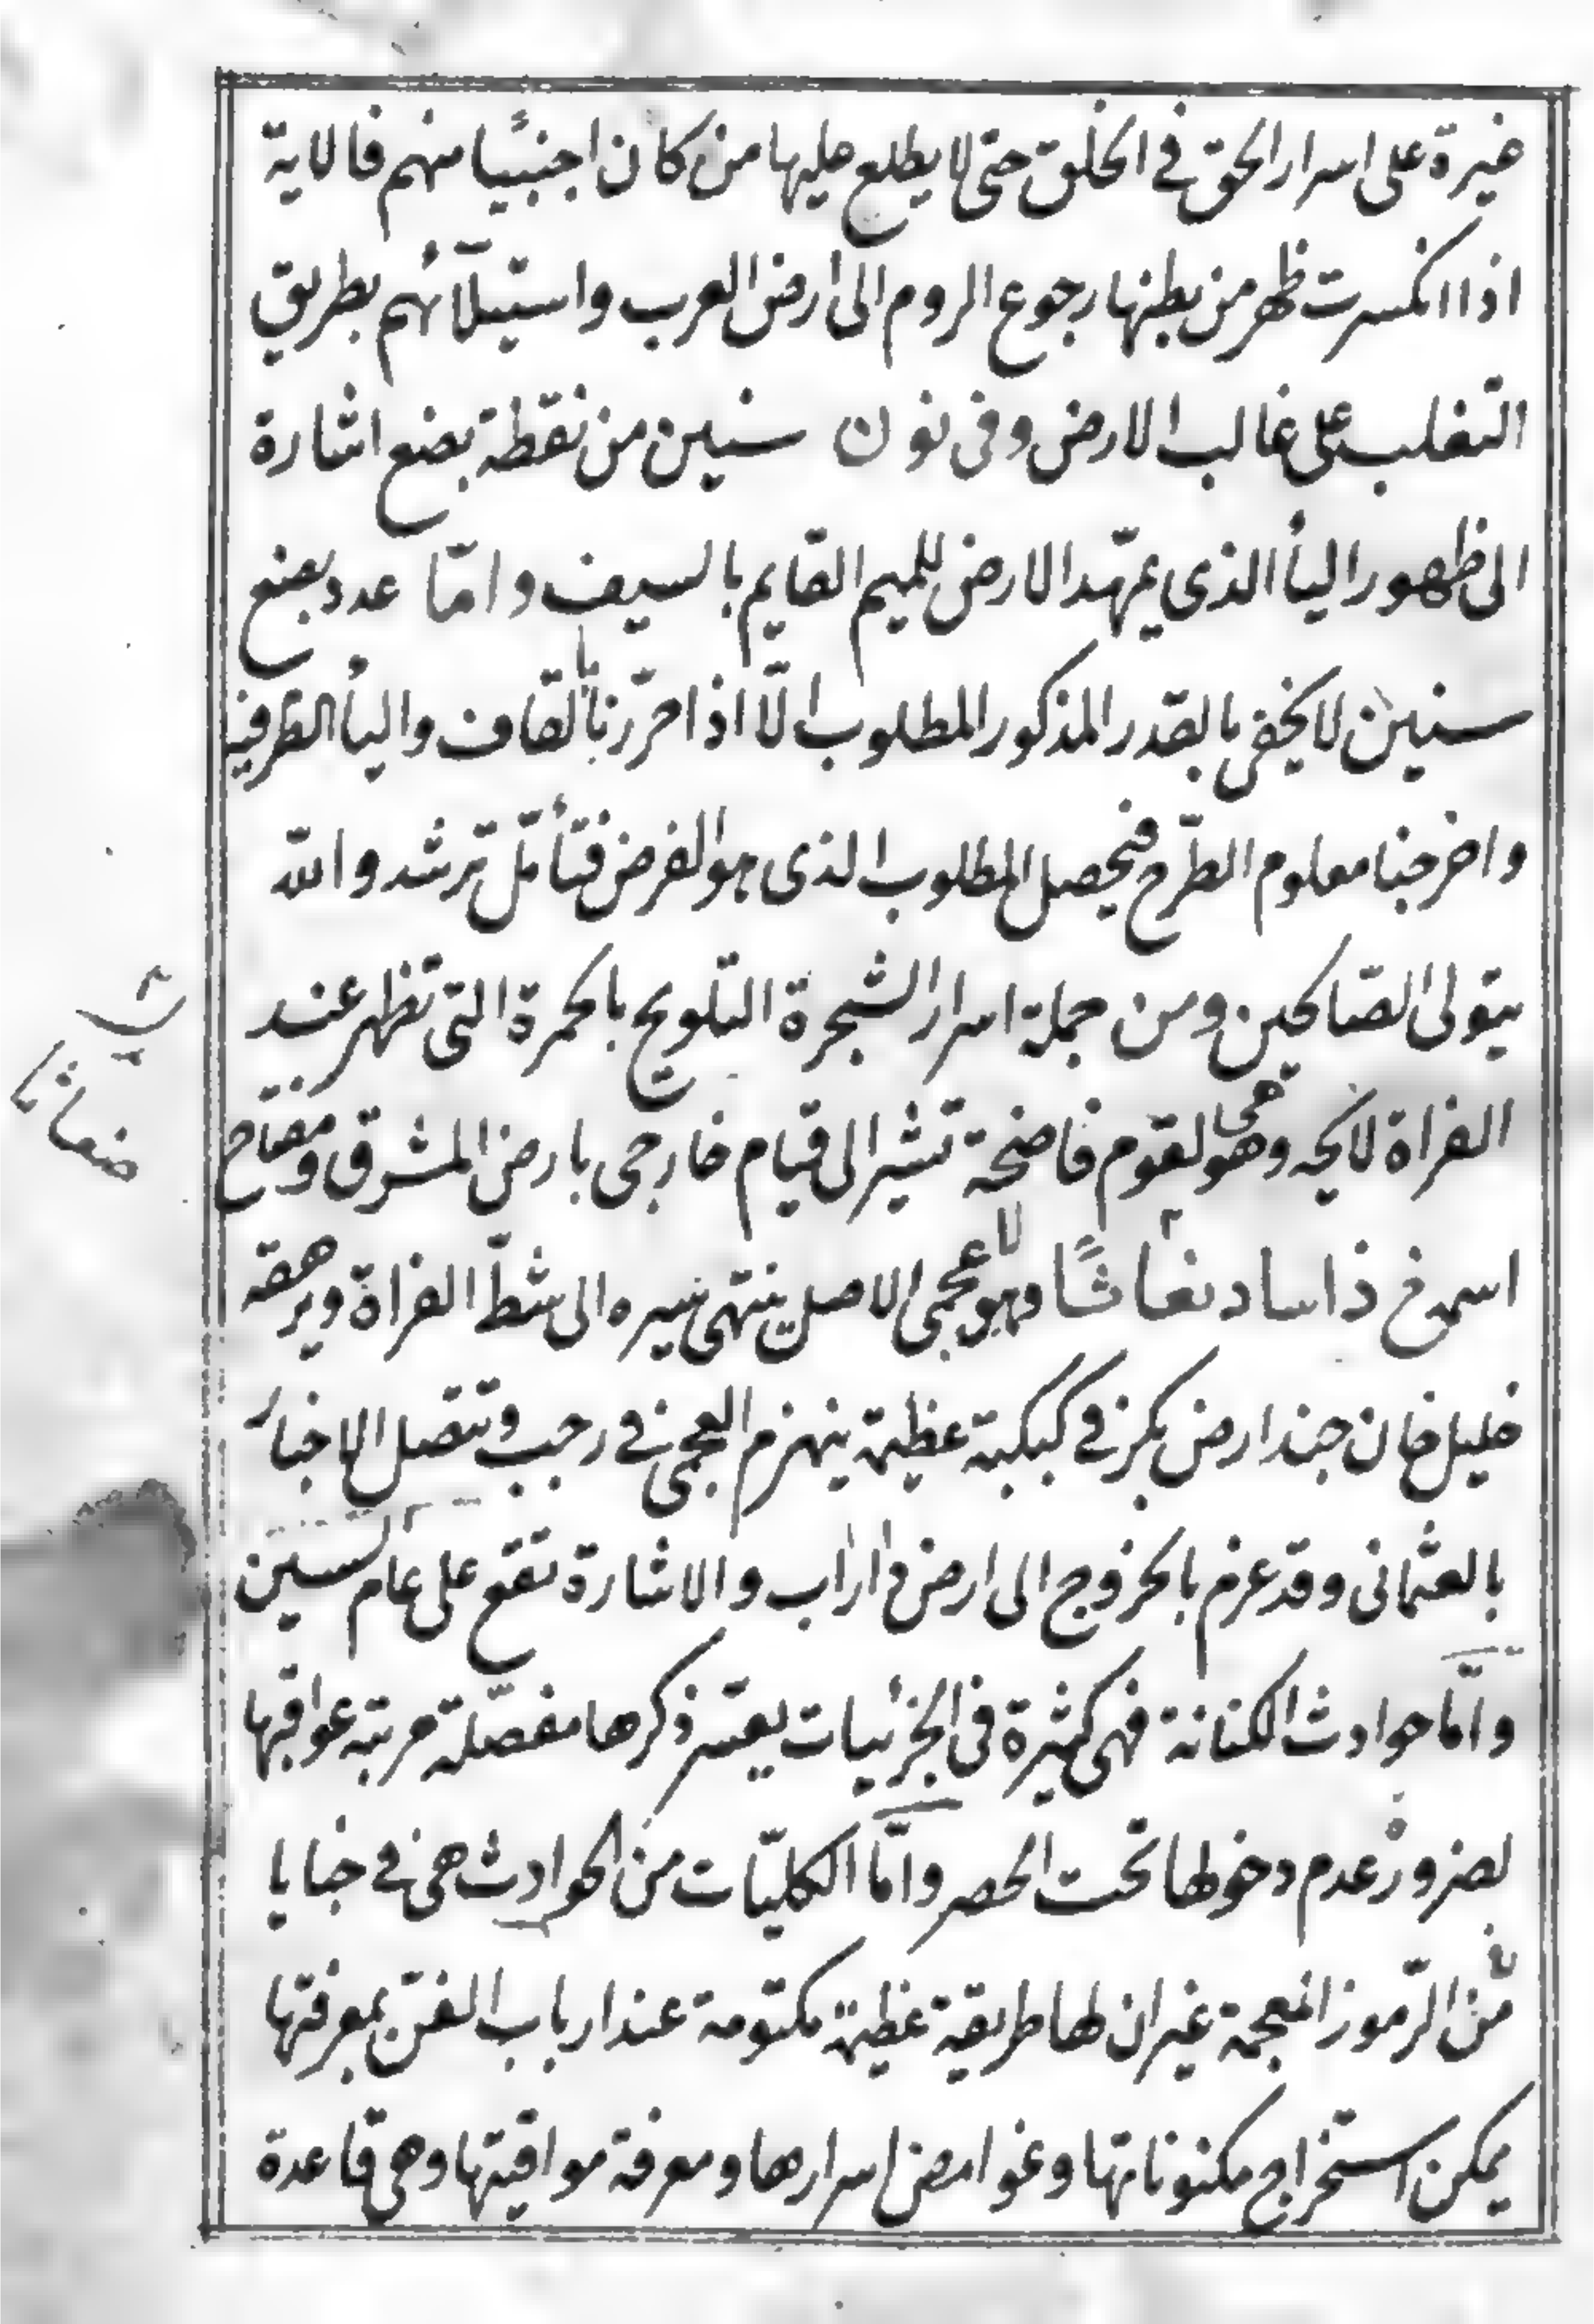 غيرة على اسرار الحق في الخلق حتى لا يطلع عليها من كان اجنبيا منهم فالاية
اذا انكسرت ظهر من بطنها رجوع الروم الى ارض العرب واستيلآئهم بطريق
التغلب على غالب الارض وفى نون سنين من نقطة بضع اشارة
الى ظهور اليأ الذى يمهّد الارض للميم القايم بالسيف وامّا عدد بضع
سنين لا يخفى بالقدر المذكور المطلوب الّا اذا حرّرنا بالقاف واليأ الطرفية
واخرجنا معلوم الطّرح فيحصل المطلوب الذى هو الغرض فتأمّل ترشد والله
يتولى الصّالحين ومن جملة اسرار الشجرة التلويح بالحمرة التى تظهر عند
الفراة لايحه وهى لقوم فاضحة تشير الى قيام خارجى بارض المشرق ومفتاح
اسمه ذاسا دنغاشًا وهو عجمى الاصل ينتهى سيره الى شطّ الفراة ويرهقه
خليل خان جند ارض بكر في كبكبة عظيمة ينهزم العجمى في رجب وتتصل الاخبار
بالعثمانى وقد عزم بالخروج الى ارض فاراب والاشارة تقع على عام السين
وامّا حوادث الكنانة فهى كثيرة فى الجزئيات يعسّر ذكرها مفصّلة مرتبه عواقبها
لضرور عدم دخولها تحت الحصر وامّا الكليّات من الحوادث هى في خبايا
من الرّموز المعجمة غير ان لها طريقة عظيمة مكتومة عند ارباب الفنّ بمعرفتها
يمكن استخراج مكنوناتها وغوامض اسرارها ومعرفة مواقيتها وهى قاعدة